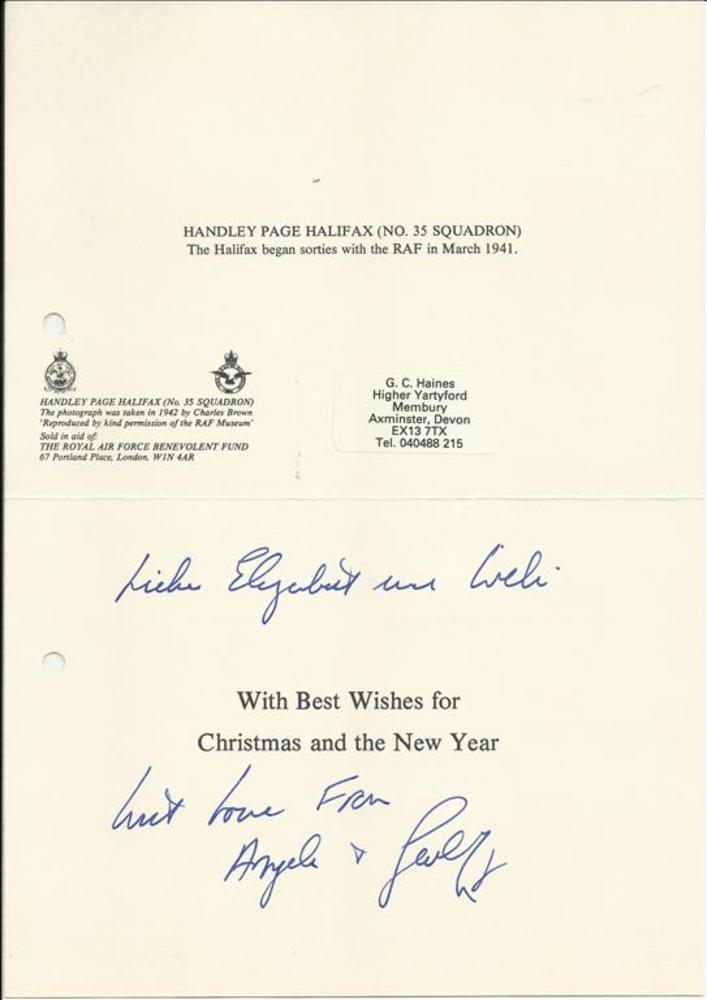 HANDLEY PAGE HALIFAX (NO. 35 SQUADRON)
The Halifax began sorties with the RAF in March 1941.
HANDLEY PAGE HALIFAX (No. 35 SQUADRON)
The photograph was taken in 1942 by Charles Brown
'Reproduced by kind permission of the RAF Museum'
Sold in aid of:
THE ROYAL AIR FORCE BENEVOLENT FUND
67 Portland Place, London. W1N 4AR
G. C. Haines
Higher Yartyford
Membury
Axminster, Devon
EX13 7TX
Tel. 040488 215
Liebe
With Best Wishes for
Christmas and the New Year
Love From
Angela &